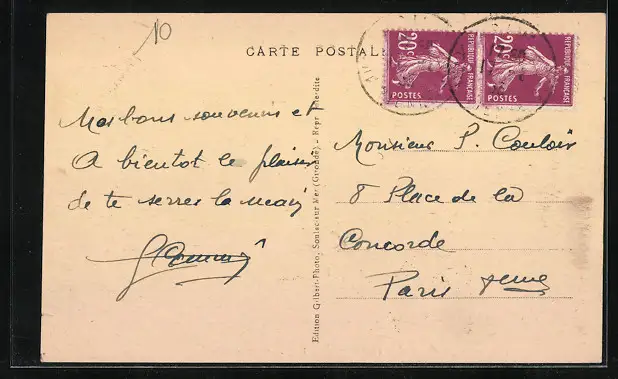 10
CARTE POSTALE
20c REPUBLIQUE FRANÇAISE POSTES
20c REPUBLIQUE FRANÇAISE POSTES
Mes bons souvenirs et
A bientot le plaisir
de te serrer la main
Edition Gilbert-Photo, Soulac-sur-Mer (Gironde) - Repr. interdite
Monsieur P. Couloir
8 Place de la
Concorde
Paris 8eme